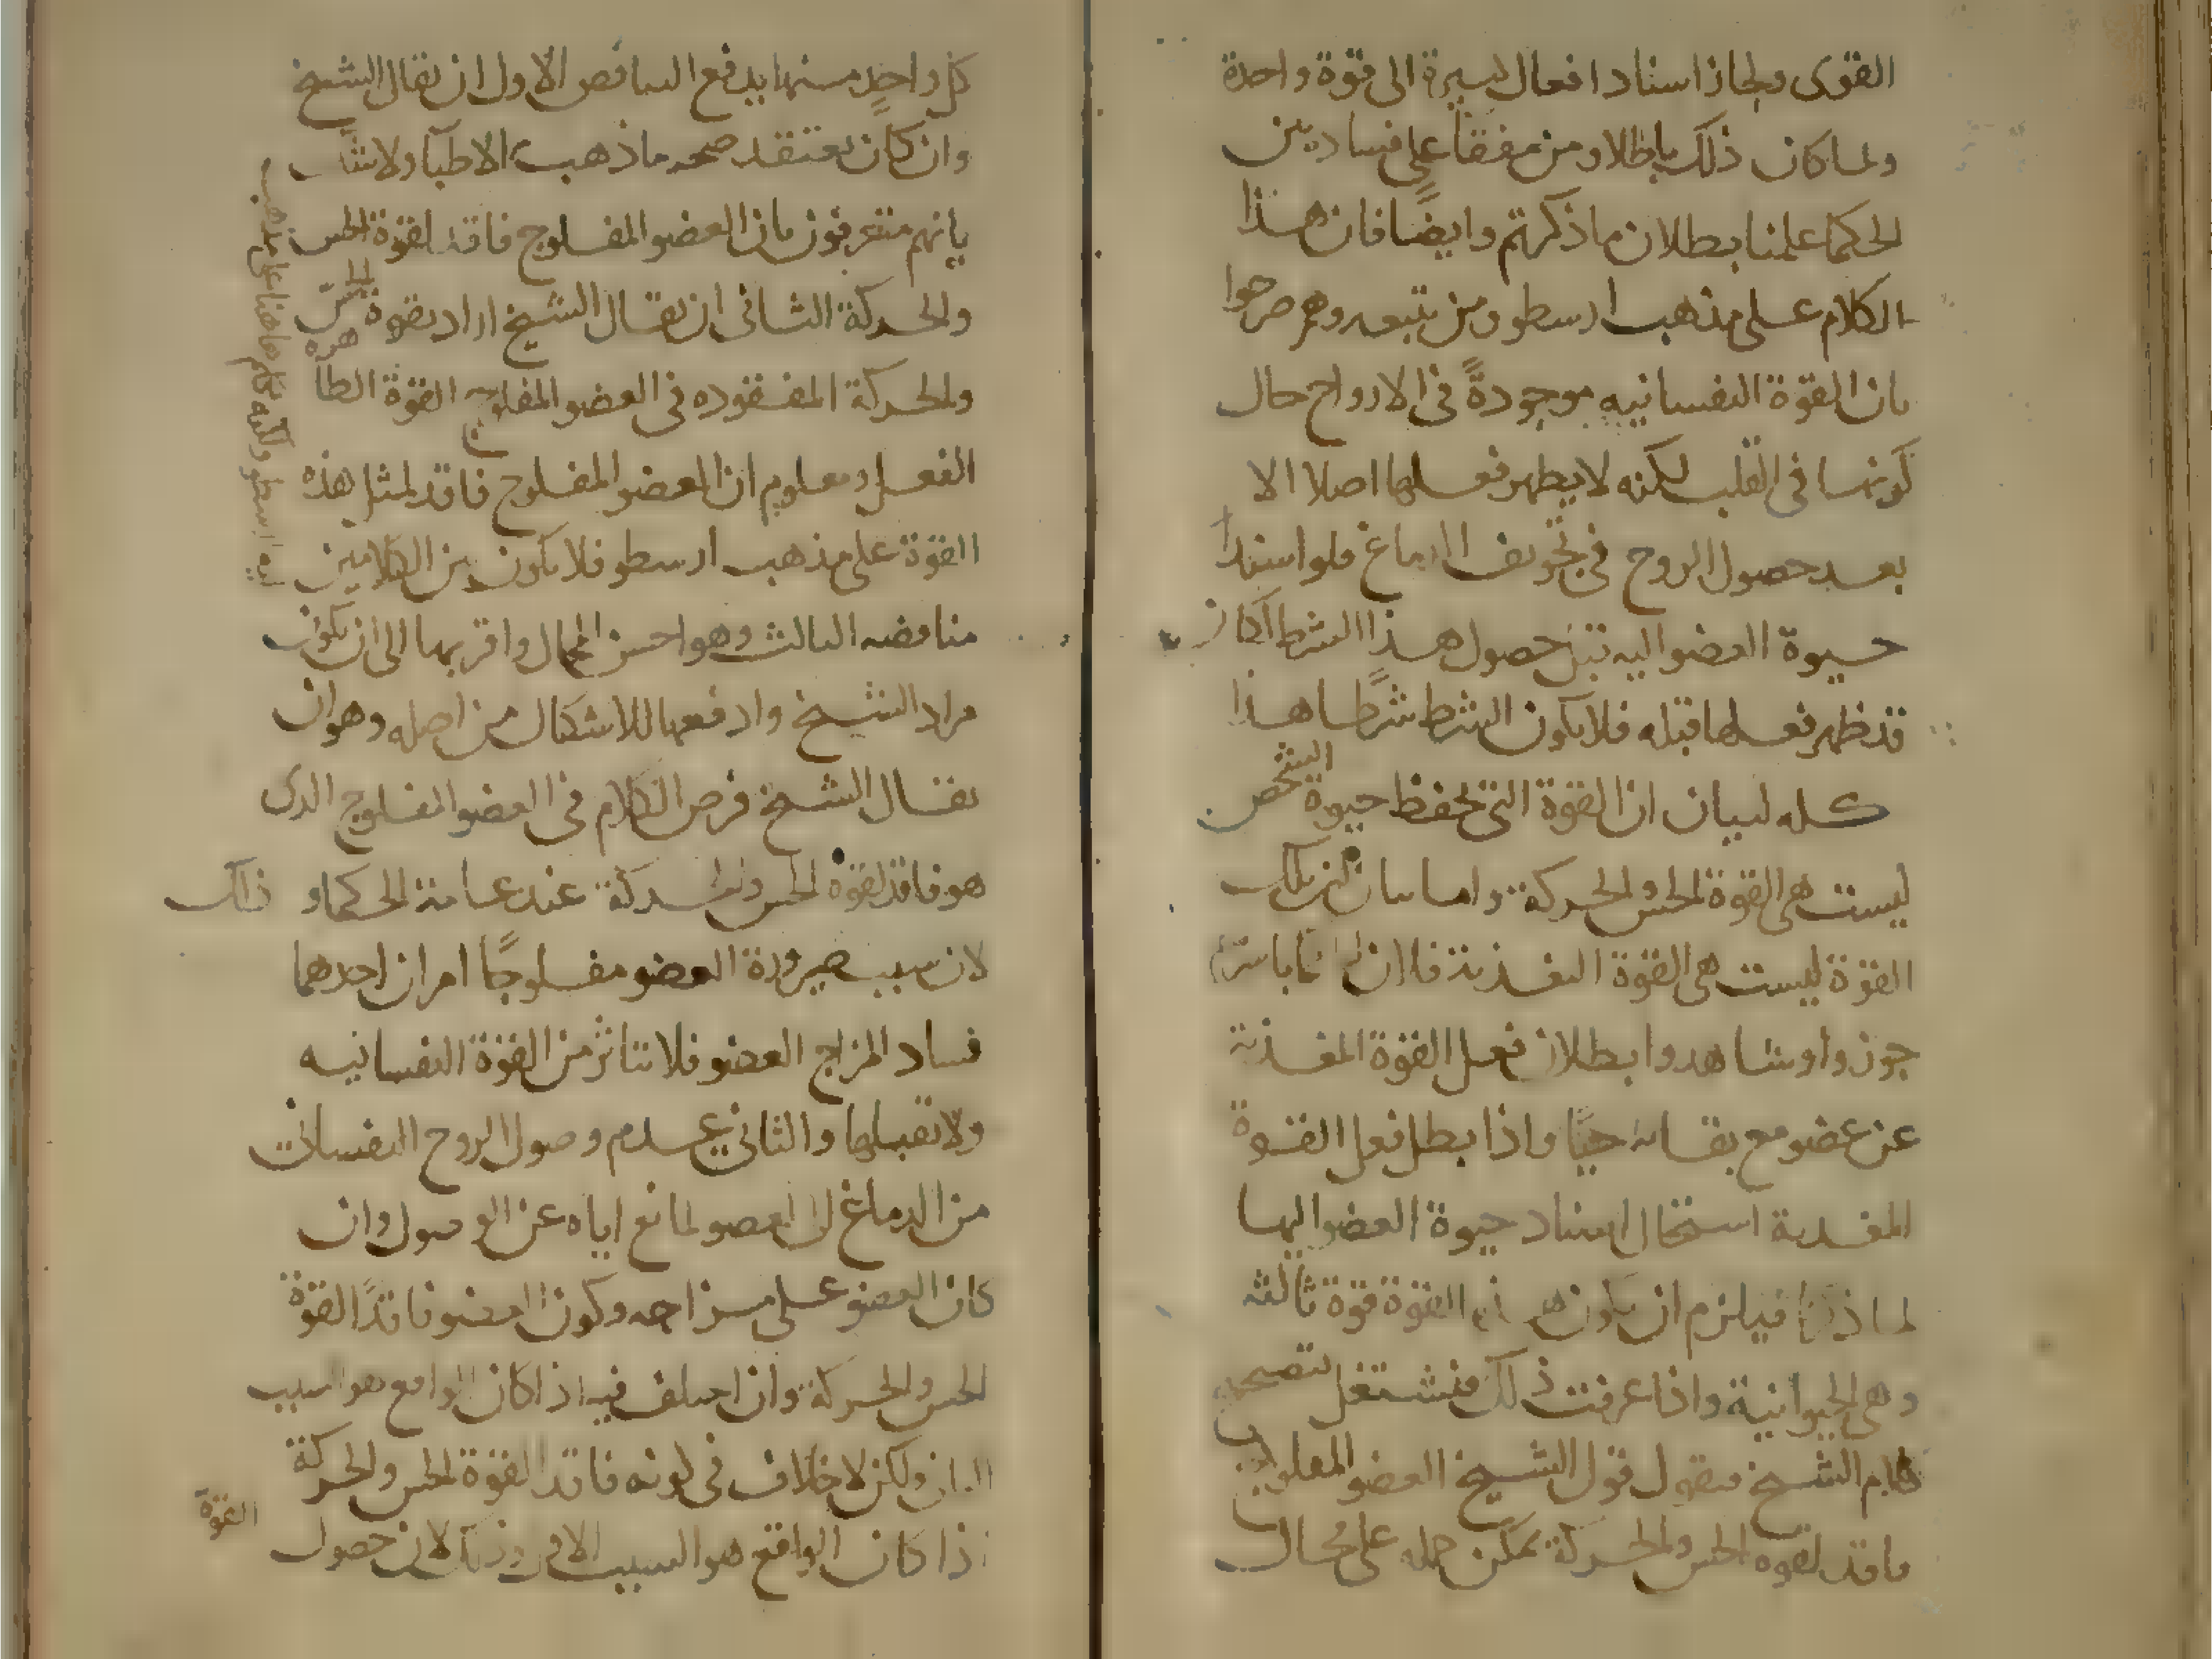 القوى ولجاز اسناد افعال كثيرة الى قوة واحدة
ولما كان ذلك باطلا ومن متفقا على فساد بين
الحكما علمنا بطلان ما ذكرتم وايضا فان هذا
الكلام على مذهب ارسطو ومن تبعه وهم صرحوا
بان القوة النفسانيه موجودة فى الارواح حال
كونها فى القلب لكنه لا يظهر فعلها اصلا الا
بعد حصول الروح فى تجويف الدماغ فلو اسند
حيوة العضو اليه قبل حصول هذا الشرط لكان
قد ظهر فعلها قبله فلا يكون الشرط شرطا هذا
كله لبيان ان القوة التى تحفظ حيوة الشخص
ليست هى القوة الحس والحركة واما بيان ان تلك
القوة ليست هى القوة المغذية فلان
جوزوا وشاهدوا بطلان فعل القوة المغذية
عن عضو مع بقائه حيًا واذا بطل فعل القوة
المغذية استحال اسناد حيوة العضو اليها
لما ذكرنا فيلزم ان يكون هذه القوة قوة ثالثة
وهى الحيوانية واذا عرفت ذلك فنشتغل بتصحيح
كلام الشيخ فنقول قول الشيخ العضو المفلوج
فاقد لقوه الحس والحركة يمكن حمله على محال
كل واحدٍ منها يدفع التناقض الاول ان يقال الشيخ
وان كان يعتقد صحه ما ذهب الاطبآ ولا شك
بانهم معترفون بان العضو المفلوج فاقد لقوة الحس
والحركة الثانى ان يقال الشيخ اراد بقوة الحسّ
والحركة المفقوده فى العضو المفلوج القوة الظاهره
الفعل ومعلوم ان العضو المفلوج فاقد لمثل هذه
القوة على مذهب ارسطو فلا يكون بين الكلامين
مناقضه الثالث وهو احسن المحال واقربها الى ان يكون
مراد الشيخ وادفعها للاشكال من اصله وهو ان
يقال الشيخ فرض الكلام فى العضو المفلوج الذى
هو فاقد لقوة الحس والحركة عند عامة الحكما و ذلك
لان سبب صيرورة العضو مفلوجًا امران احدهما
فساد المزاج العضو فلا يتاثر من القوة النفسانيه
ولا تقبلها والثانى عدم وصول الروح النفسانى
من الدماغ الى العضو لمانع اياه عن الوصول وان
كان العضو على مزاجه وكون العضو فاقدًا لقوة
الحس والحركة وان اختلف فيه اذا كان الواقع هو السبب
الثانى ولكن لا خلاف فى كونه فاقد القوة الحس والحركة
اذا كان الواقع هو السبب الاول وذلك لان حصول
القوة